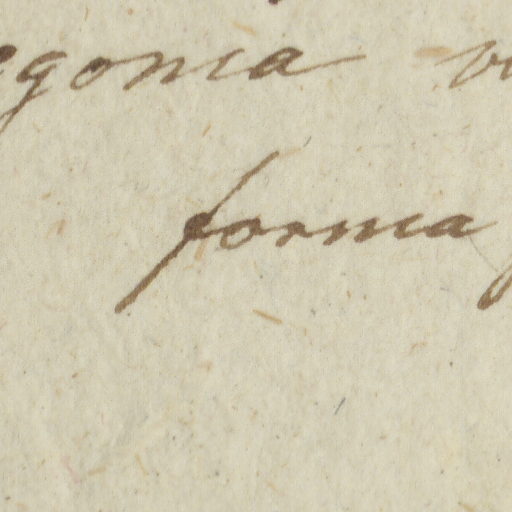 egonia v
forma